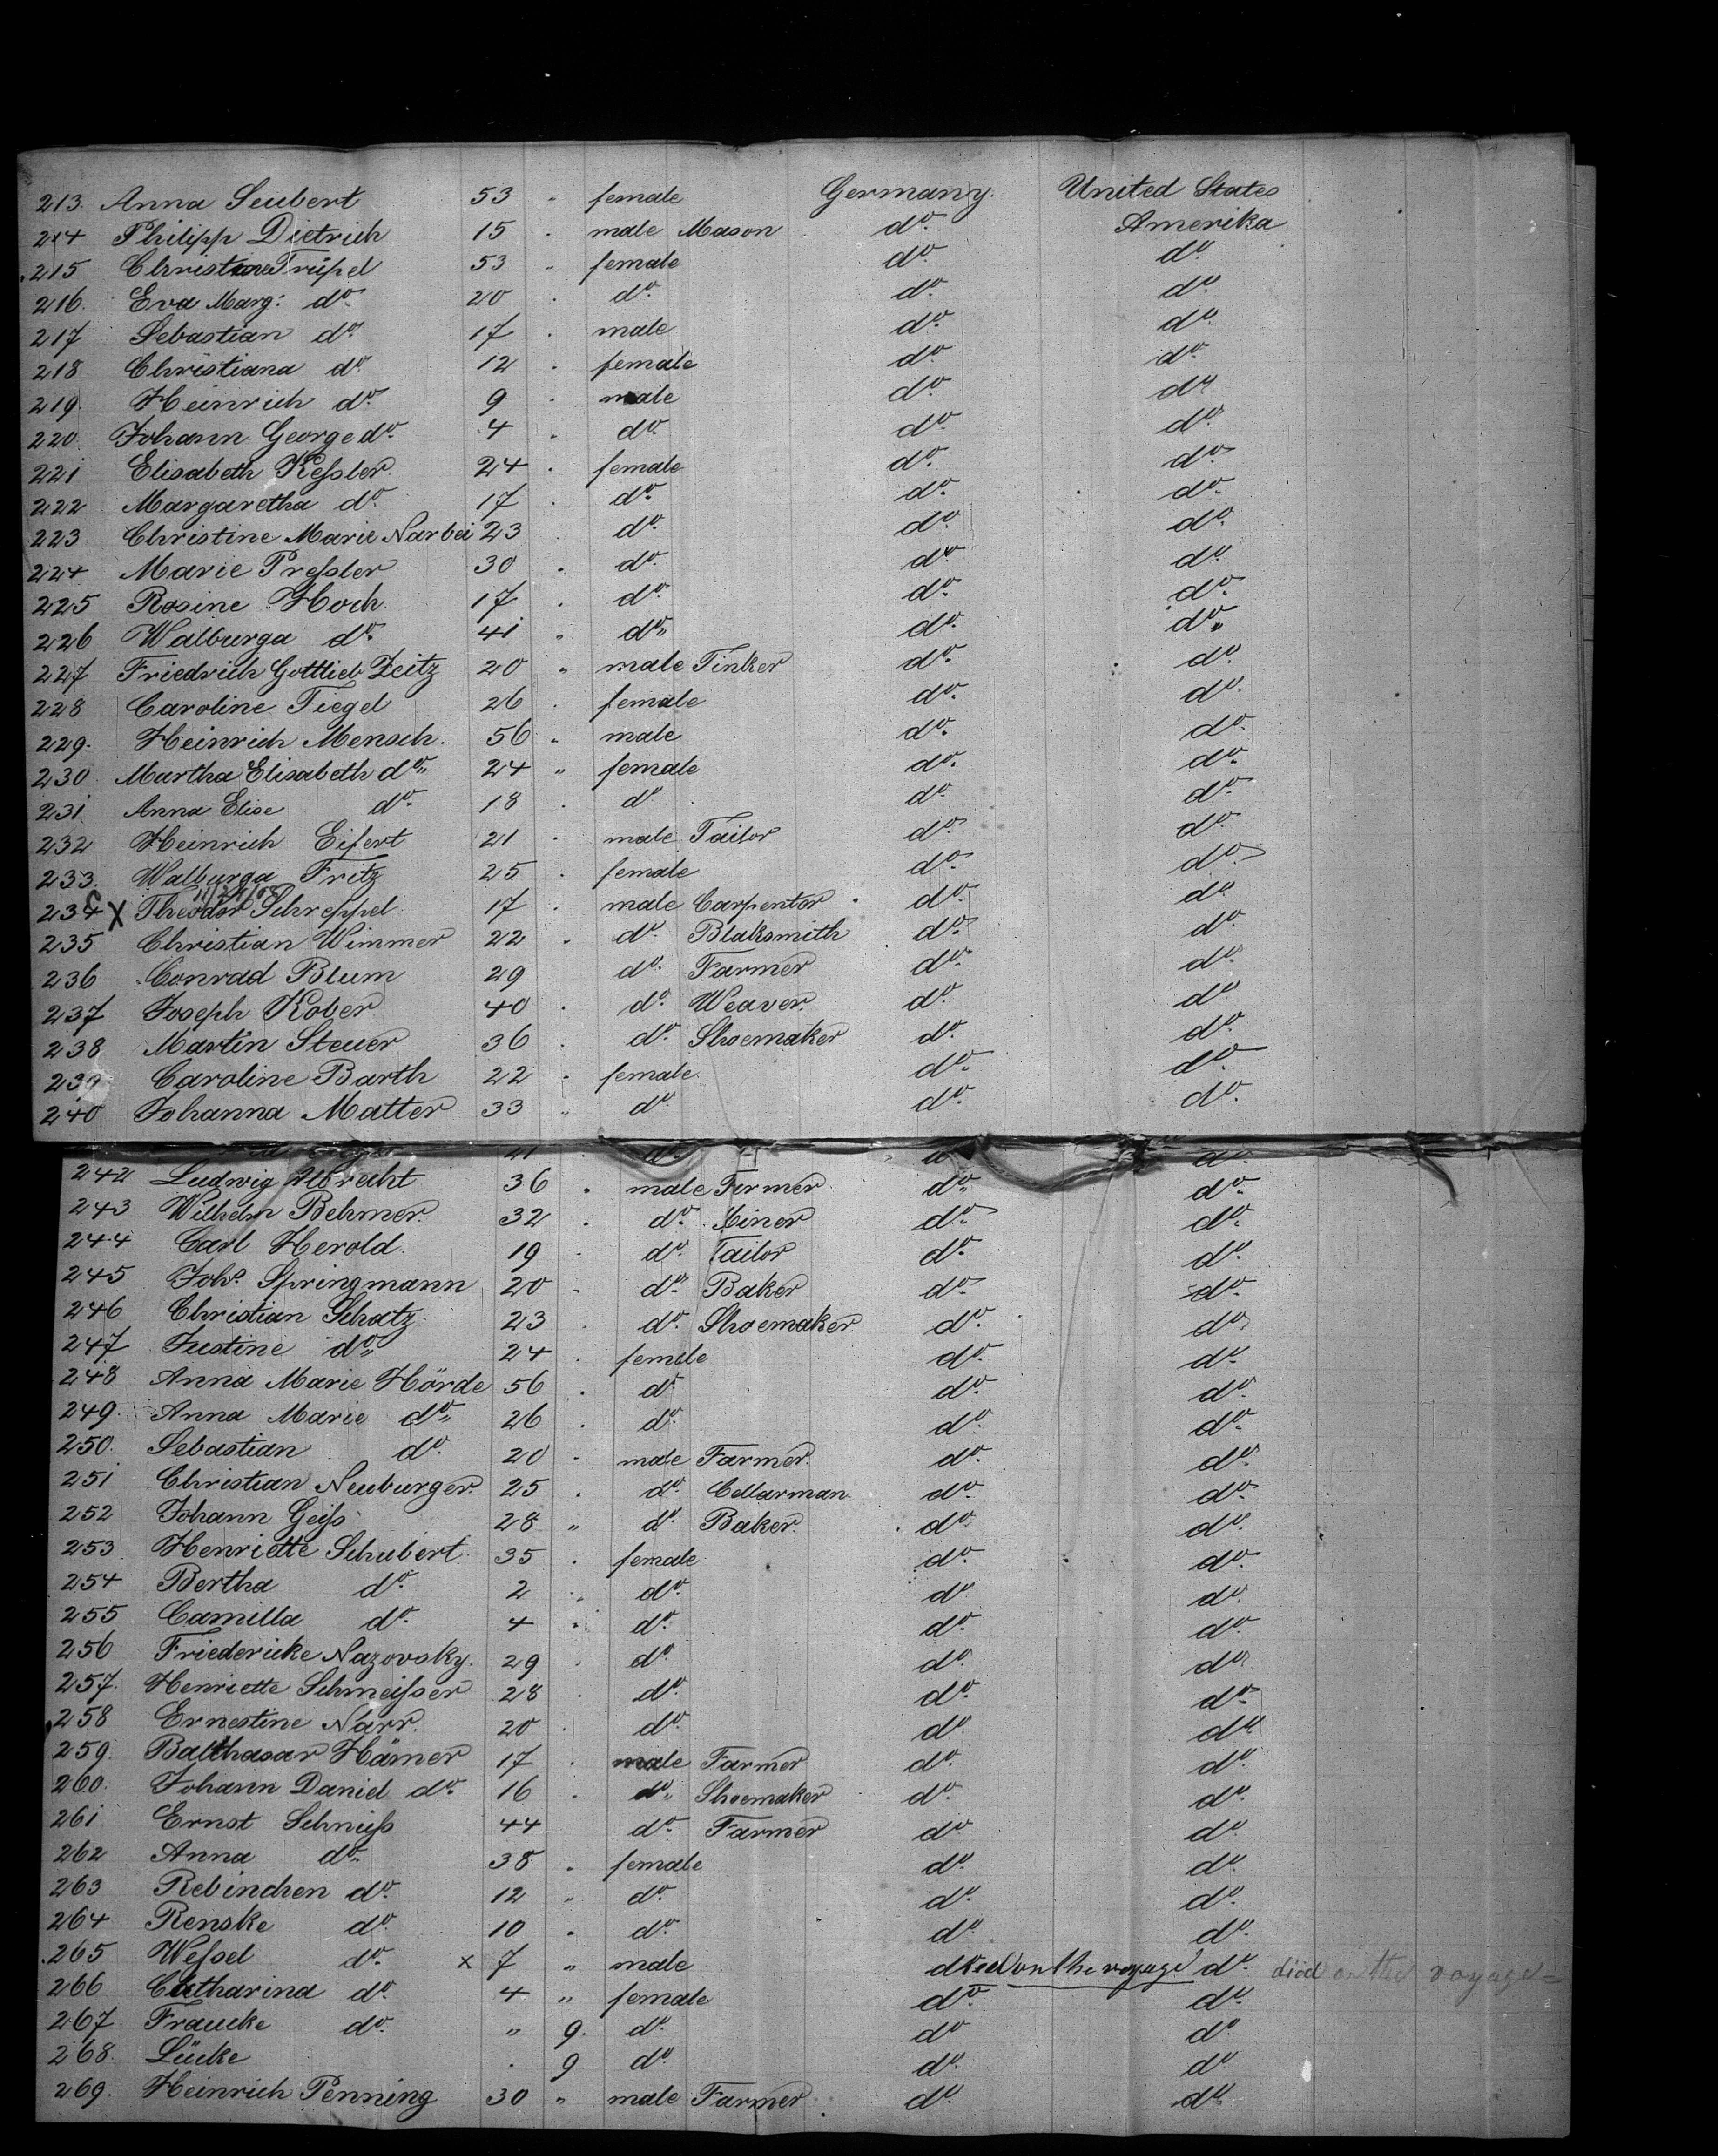 213. Anna Seubert 53 " female Germany. United States
214 Philipp Dietrich 15 . male Mason do. Amerika
215 Christine Trüpel 53 " female do. do.
216. Eva Marg: do. 20 . do. do. do.
217 Sebastian do. 17 . male do. do.
218 Christiana do. 12 . female do. do.
219. Heinrich do. 9 . male do. do.
220. Johann George do. 4 . do. do. do.
221 Elisabeth Keſsler 24 . female do. do.
222 Margaretha do. 17 . do. do. do.
223 Christine Marie Narbei 23 . do. do. do.
224 Marie Preſsler 30 . do. do. do.
225 Rosine Hoch. 17 . do. do. do.
226 Walburga do. 41 " do. do. do.
227 Friedrich Gottlieb Zeitz 20 " male Tinker do. do.
228 Caroline Tiegel 26 . female do. do.
229. Heinrich Mensch. 56 " male do. do.
230 Martha Elisabeth do. 24 " female do. do.
231 Anna Elise do. 18 . do. do. do.
232 Heinrich Eifert 21 . male Tailor do. do.
233. Walburga Fritz 25 . female do. do.
234 X Theodor Schreppel 17 . male Carpenter do. do.
235 Christian Wimmer 22 . do. Blaksmith do. do.
236 Conrad Blum 29 do. Farmer do. do.
237 Joseph Kober 40 . do. Weaver. do. do.
238 Martin Steuer 36 . do. Shoemaker do. do.
239 Caroline Barth 22 . female. do. do.
240 Johanna Matter 33 " do. do. do.
21 do. do. do.
242 Ludwig Albrecht 36 . male Farmer do. do.
243 Wilhelm Behmer. 32 . do. do. do.
244 Carl Herold. 19 . do. Tailor do. do.
245 Johs. Springmann 20 . do. Baker do. do.
246 Christian Schatz 23 . do. Shoemaker do. do.
247 Justine do. 24 . female do. do.
248 Anna Marie Hörde 56 . do. do. do.
249. Anna Marie do. 26 . do. do. do.
250. Sebastian do. 20 . male Farmer. do. do.
251 Christian Neuburger. 25 . do. Cellarman do. do.
252 Johann Geiſs 28 " do. Baker. do. do.
253 Henriette Schubert 35 . female do. do.
254 Bertha do. 2 . do. do. do.
255 Camilla do. 4 . do. do. do.
256 Friedericke Nazovsky. 29 . do. do. do.
257. Henriette Schmeiſser 28 . do. do. do.
258 Ernestine Narr. 20 . do. do. do.
259. Balthasar Hämer 17 . male Farmer do. do.
260. Johann Daniel do. 16 . do. Shoemaker do. do.
261 Ernst Schnieſs 44 do. Farmer do. do.
262 Anna do. 38 . female do. do.
263 Rebinchen do. 12 " do. do. do.
264 Renske do. 10 . do. do. do.
265 Weſsel do. x 7 " male died on the voyage do. died on the voyage =
266 Catharina do. 4 " female do. do.
267 Fraucke do. " 9. do. do. do.
268. Lücke . 9 do. do. do.
269. Heinrich Penning 30 " male Farmer. do. do.